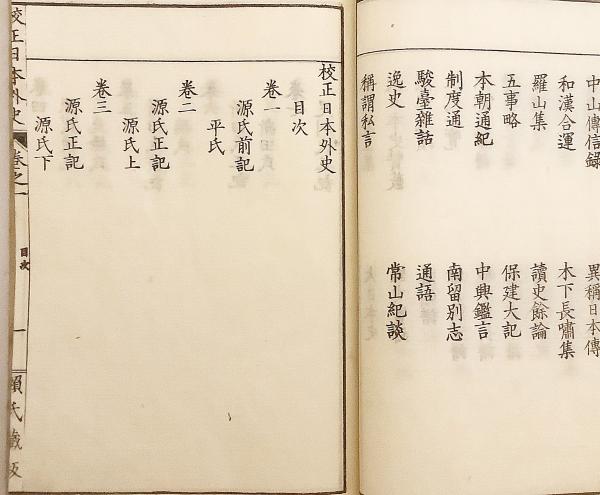 中山傳信錄
異稱日本傳
和漢合運
木下長嘯集
羅山集
讀史餘論
五事略
保建大記
本朝通紀
中興鑑言
制度通
南留別志
駿臺雜話
通語
逸史
常山紀談
稱謂私言
校正日本外史
目次
卷一
源氏前記
平氏
卷二
源氏正記
源氏上
卷三
源氏正記
源氏下
校正日本外史
卷之一
目次
一
賴氏藏版